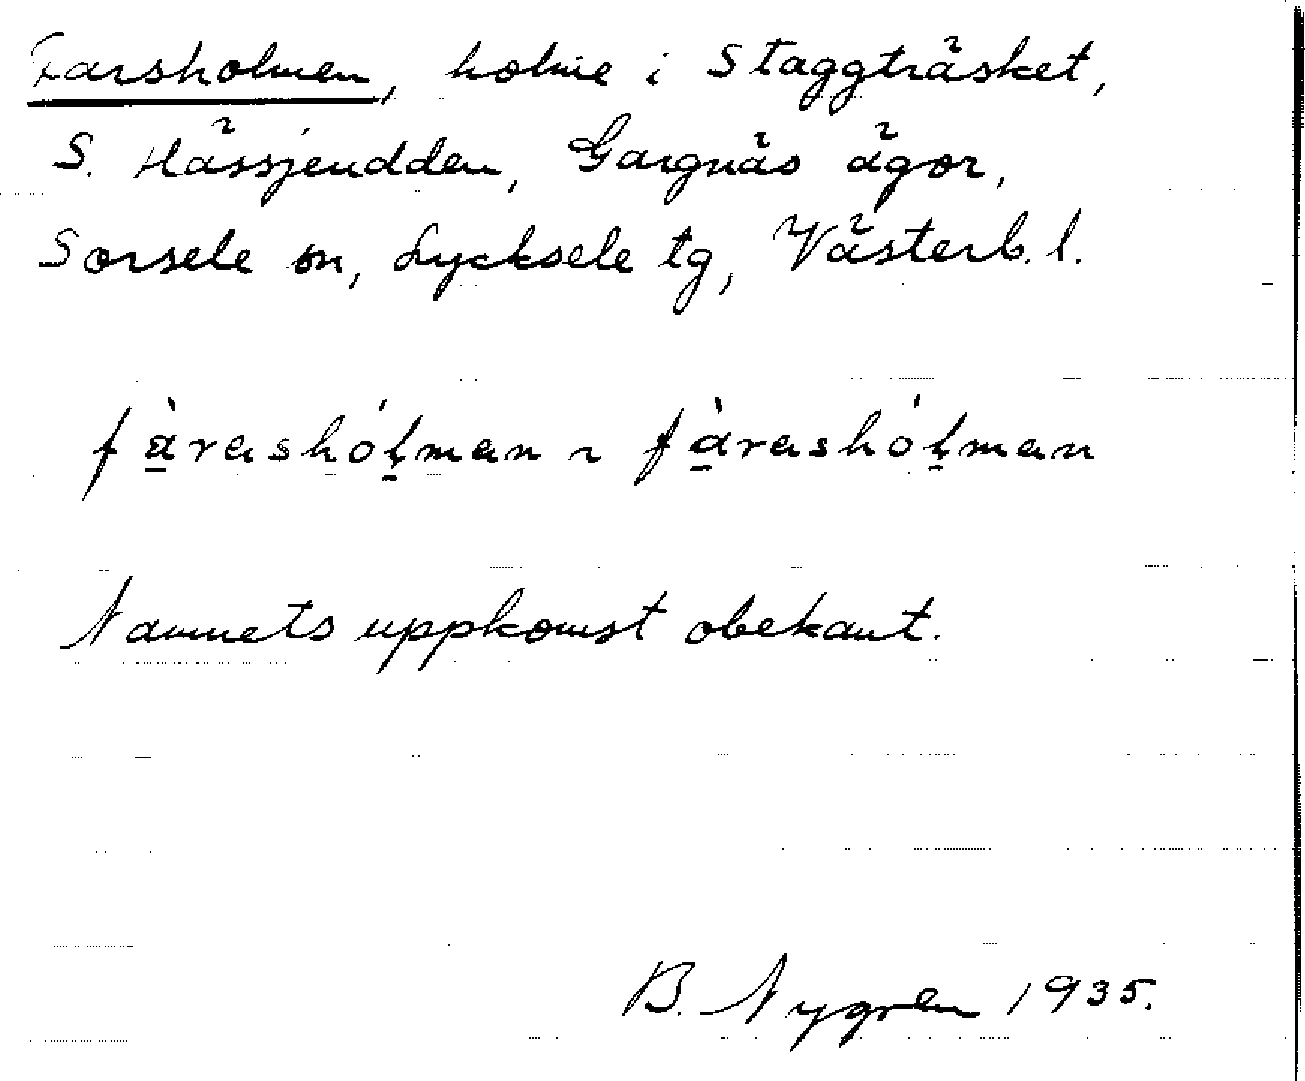 Farsholmen, holme i Staggträsket,
S. Hässjeudden, Gargnäs ägor,
Sorsele sn, Lycksele tg, Västerb. l.
fàrashól̠man ~ fàrashól̠man
Namnets uppkomst obekant.
B. Nygren 1935.